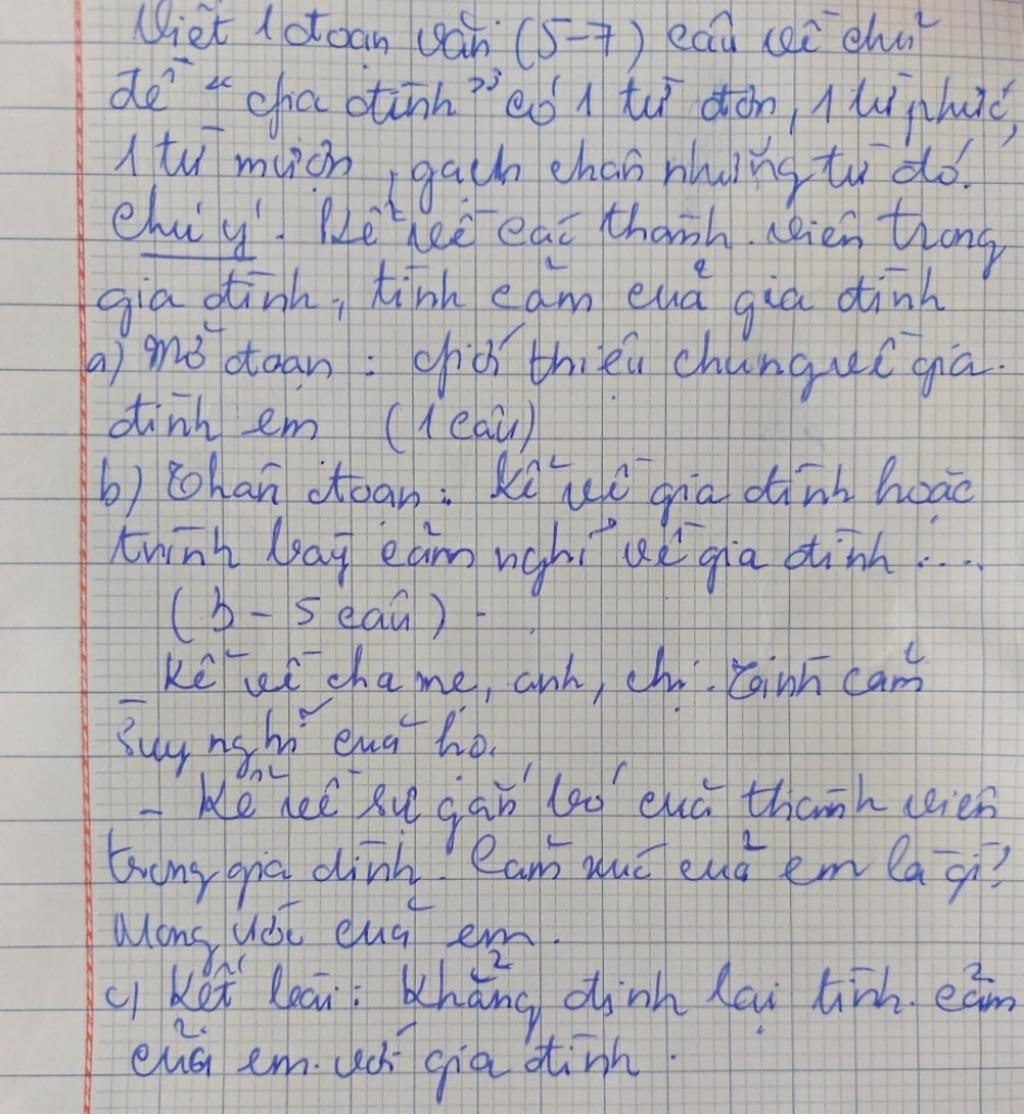 Viết 1 đoạn văn (5-7) câu về chủ
đề "Gia đình" có 1 từ đơn, 1 từ phức,
1 từ mượn, gạch chân những từ đó.
Chú ý: Kể về các thành viên trong
gia đình, tình cảm của gia đình
a) Mở đoạn: Giới thiệu chung về gia
đình em (1 câu)
b) Thân đoạn: Kể về gia đình hoặc
trình bày cảm nghĩ về gia đình ....
(3-5 câu)
- Kể về cha mẹ, anh, chị. Tình cảm
suy nghĩ của họ.
- Kể về sự gắn bó của thành viên
trong gia đình. Cảm xúc của em là gì?
Mong ước của em.
c) Kết bài: Khẳng định lại tình cảm
của em với gia đình.